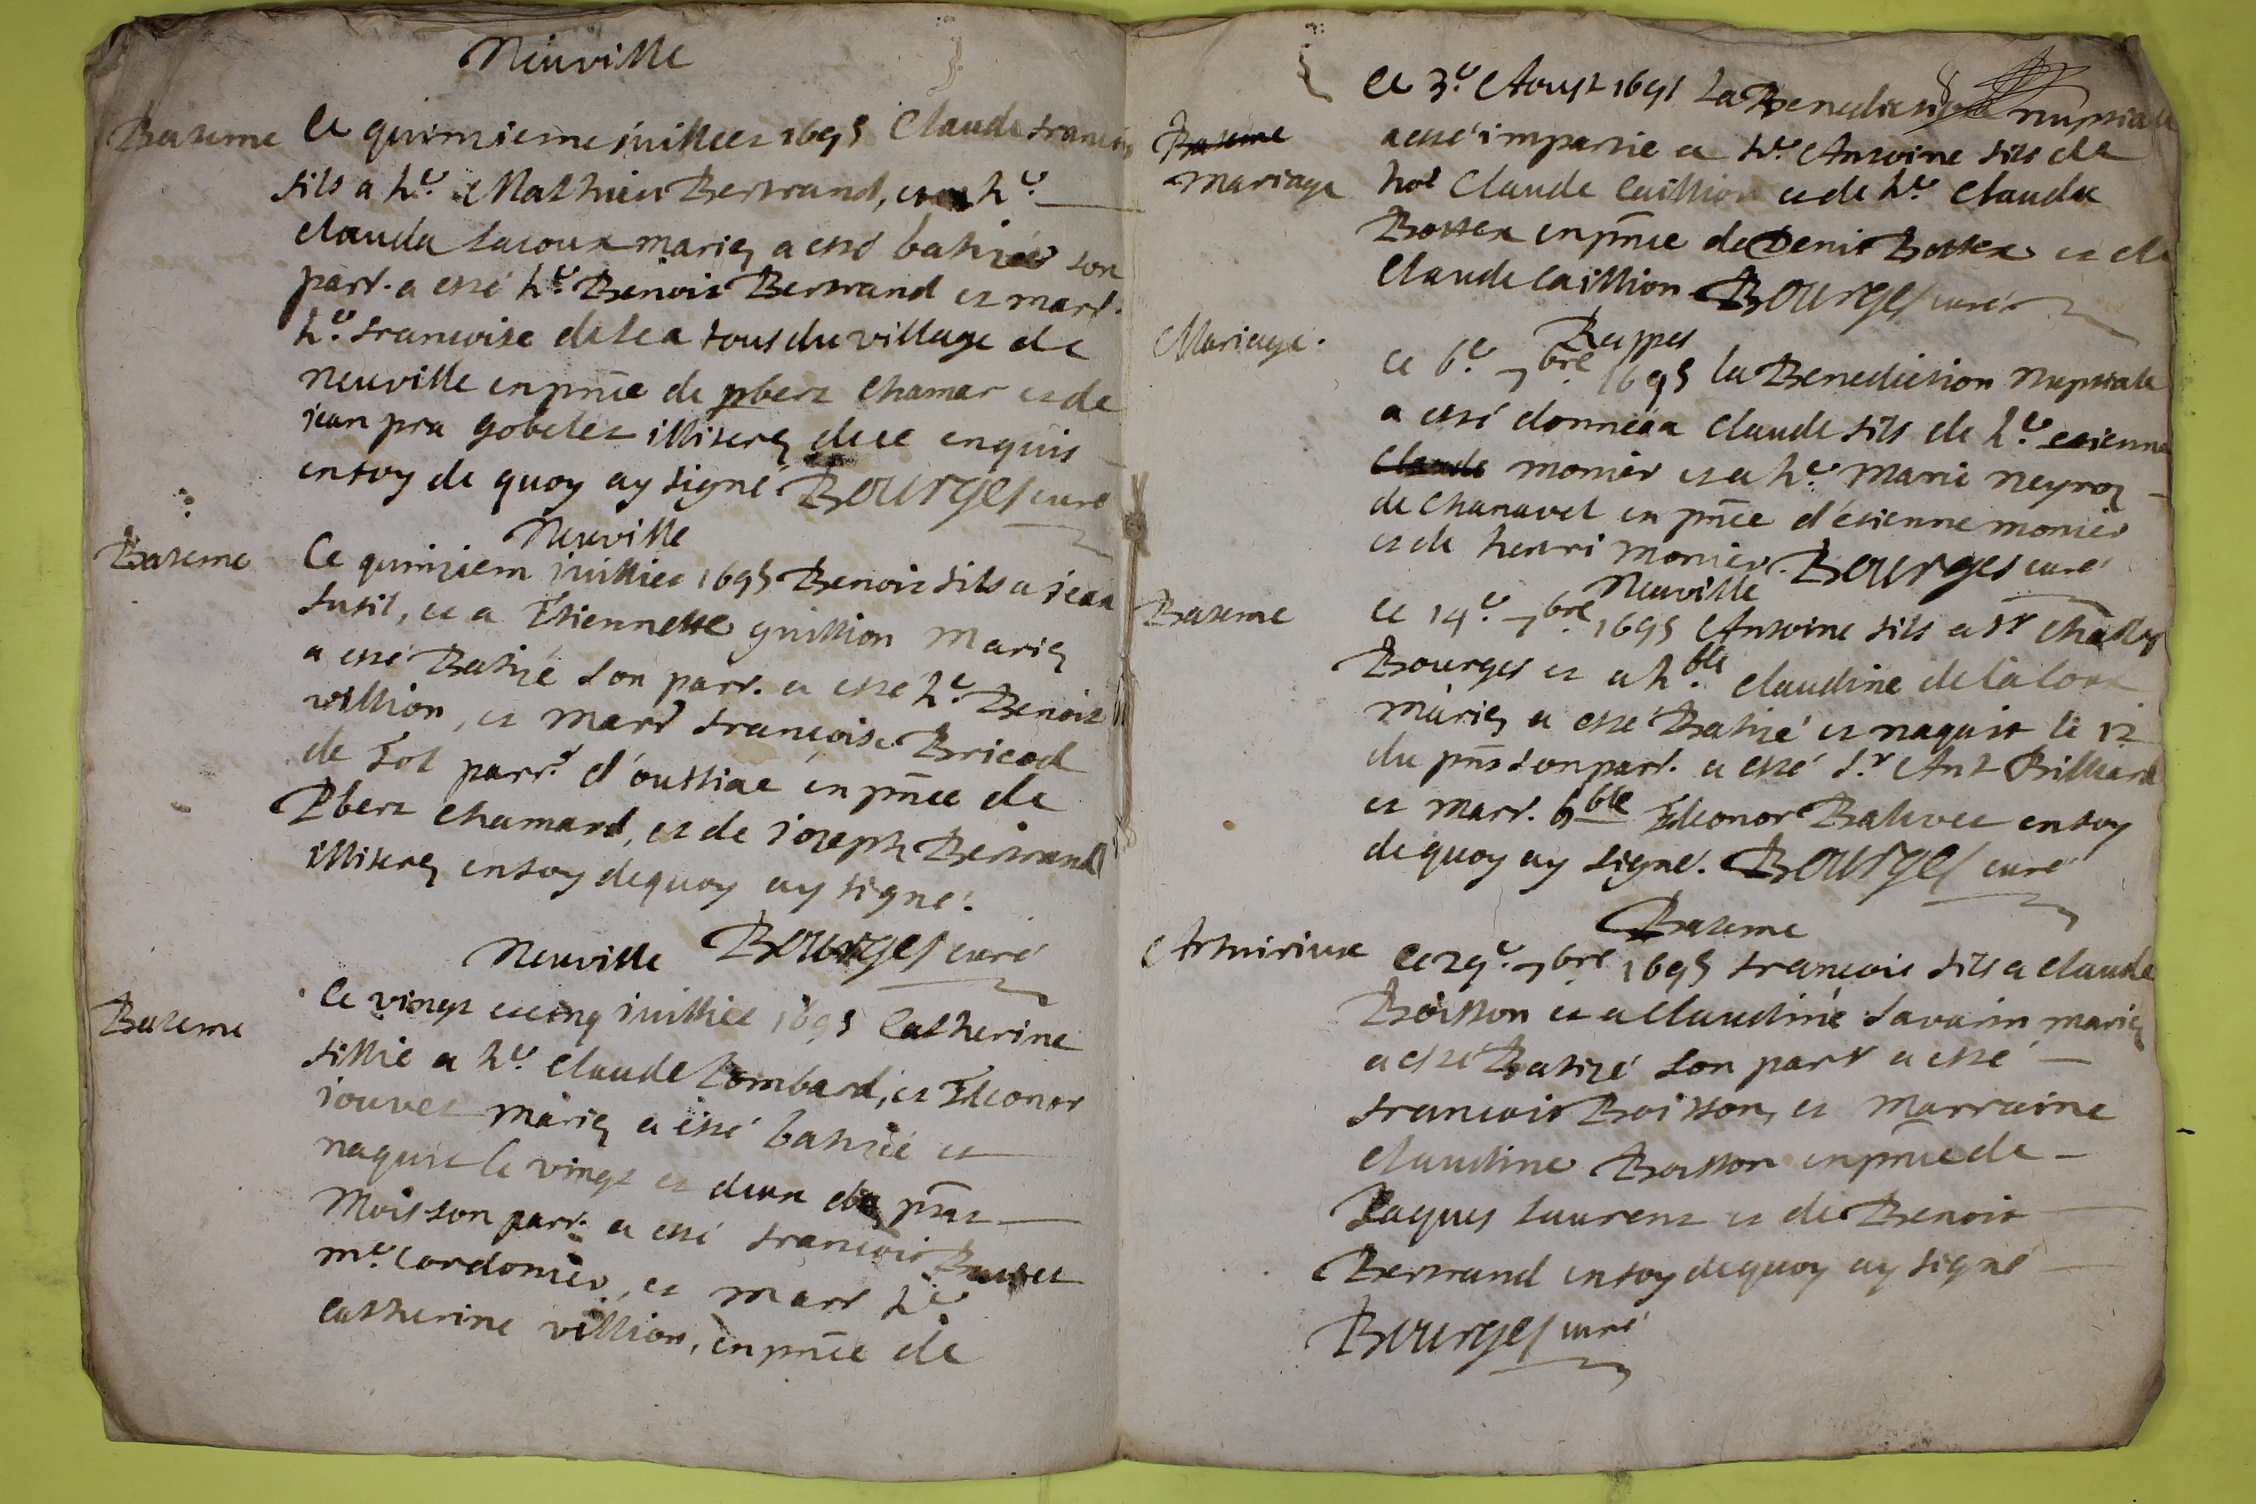 Neuville
Bateme Ce quinzieme juilliet 1695 Claude francois
fils a h.e Mathieu Bertrand, et a h.e
clauda lacoux mariez a esté batizé son
parr. a esté h.e Benoit Bertrand et marr.
h.e francoise delea tous du village de
Neuville en pñce de pbert chamar et de
jean pra gobelet illiterez de ce enquis
en foy de quoy ay signé Bourges curé
Neuville
Bateme Ce quinziem juilliet 1695 Benoit fils a jean
futil, et a Etiennette guillion Mariez
a esté Batizé son parr. a esté h.e Benoit
villion, et marr francoise Bricod
de fol parr.e d'oussiat en pñce de
Pbert chamard, et de joseph Bertrand
illiterez en foy de quoy ay signé.
Bourges curé
Neuville
Bateme Ce vingt et cinq juilliet 1695 Catherine
fillie a h.e claude Lombard, et Eleonor
jouvet mariez a esté batizée et
naquit le vingt et deux du pñt
Mois son parr. a esté francois
m.e Cordonier, et marr h.e
Catherine villion, en pñce de
Ce 3.e Aoust 1695 La Benediction nuptiale
Bateme
Mariage
a esté impartie a h.e Antoine fils de
hoe Claude Caillion et de h.e Clauda
Bottex en pñce de Denis Bottex et de
Claude Caillion Bourges curé
Rappes
Mariage. Ce 6.e 7bre 1695 la Benediction Nuptiale
a esté donnée a Claude fils de h.e etienne
Claude monier et a h.e Marie neyroz
de chanavel en pñce d'etienne monier
et de henri monier. Bourges curé
Neuville
Bateme Ce 14.e 7bre 1695 Antoine fils a sr Charles
Bourges et a h.ble claudine de la Cour
mariez a esté Batizé et naquit le 12
du pñt son parr. a esté s.r Ant Billiard
et marr. hble Eleonor Balivet en foy
de quoy ay signé. Bourges curé
Bateme
Arthurieux Ce 29.e 7bre 1695 francois fils a claude
Boisson et a Claudine savarin mariez
a esté Batizé son parr a esté
francois Boisson, et Marraine
claudine Boisson en pñce de
Jaques laurent et de Benoit
Bertrand en foy de quoy ay signé
Bourges curé